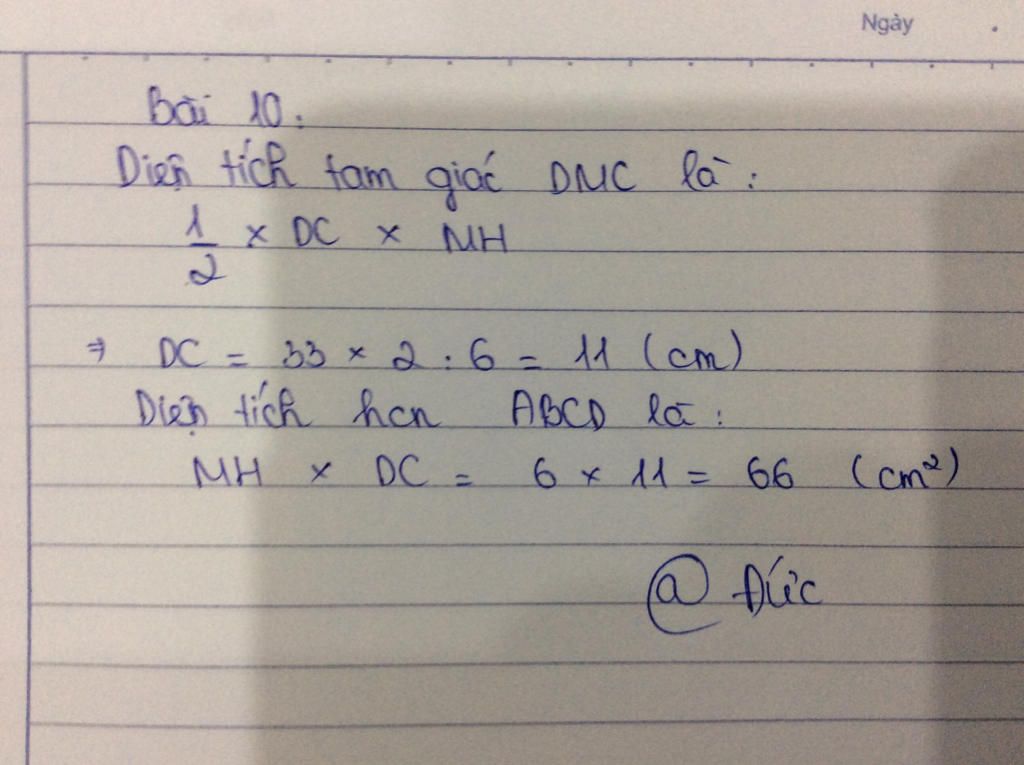 Ngày
Bài 10:
Diện tích tam giác DMC là:
1/2 × DC × MH
⇒ DC = 33 × 2 : 6 = 11 (cm)
Diện tích hcn ABCD là:
MH × DC = 6 × 11 = 66 (cm²)
@ Đức